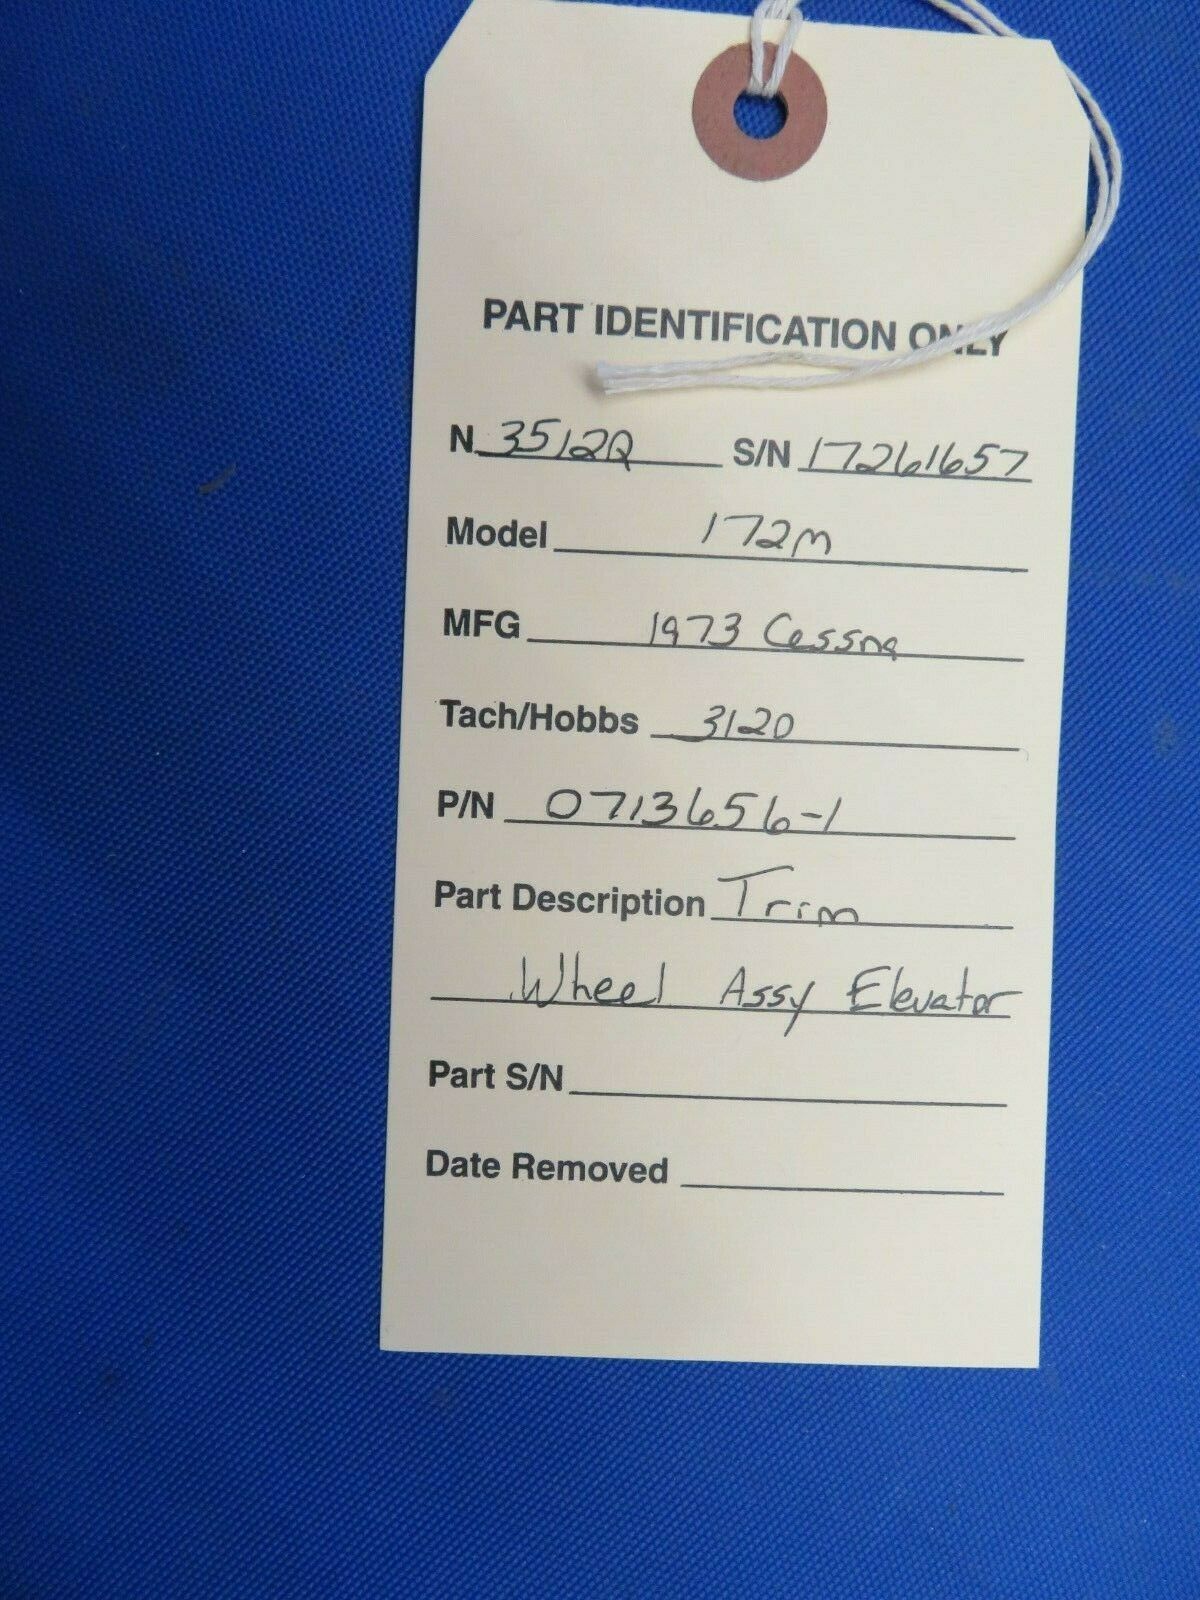 PART IDENTIFICATION ONLY
N 3512Q S/N 17261657
Model 172M
MFG 1973 Cessna
Tach/Hobbs 3120
P/N 0713656-1
Part Description Trim
Wheel Assy Elevator
Part S/N
Date Removed